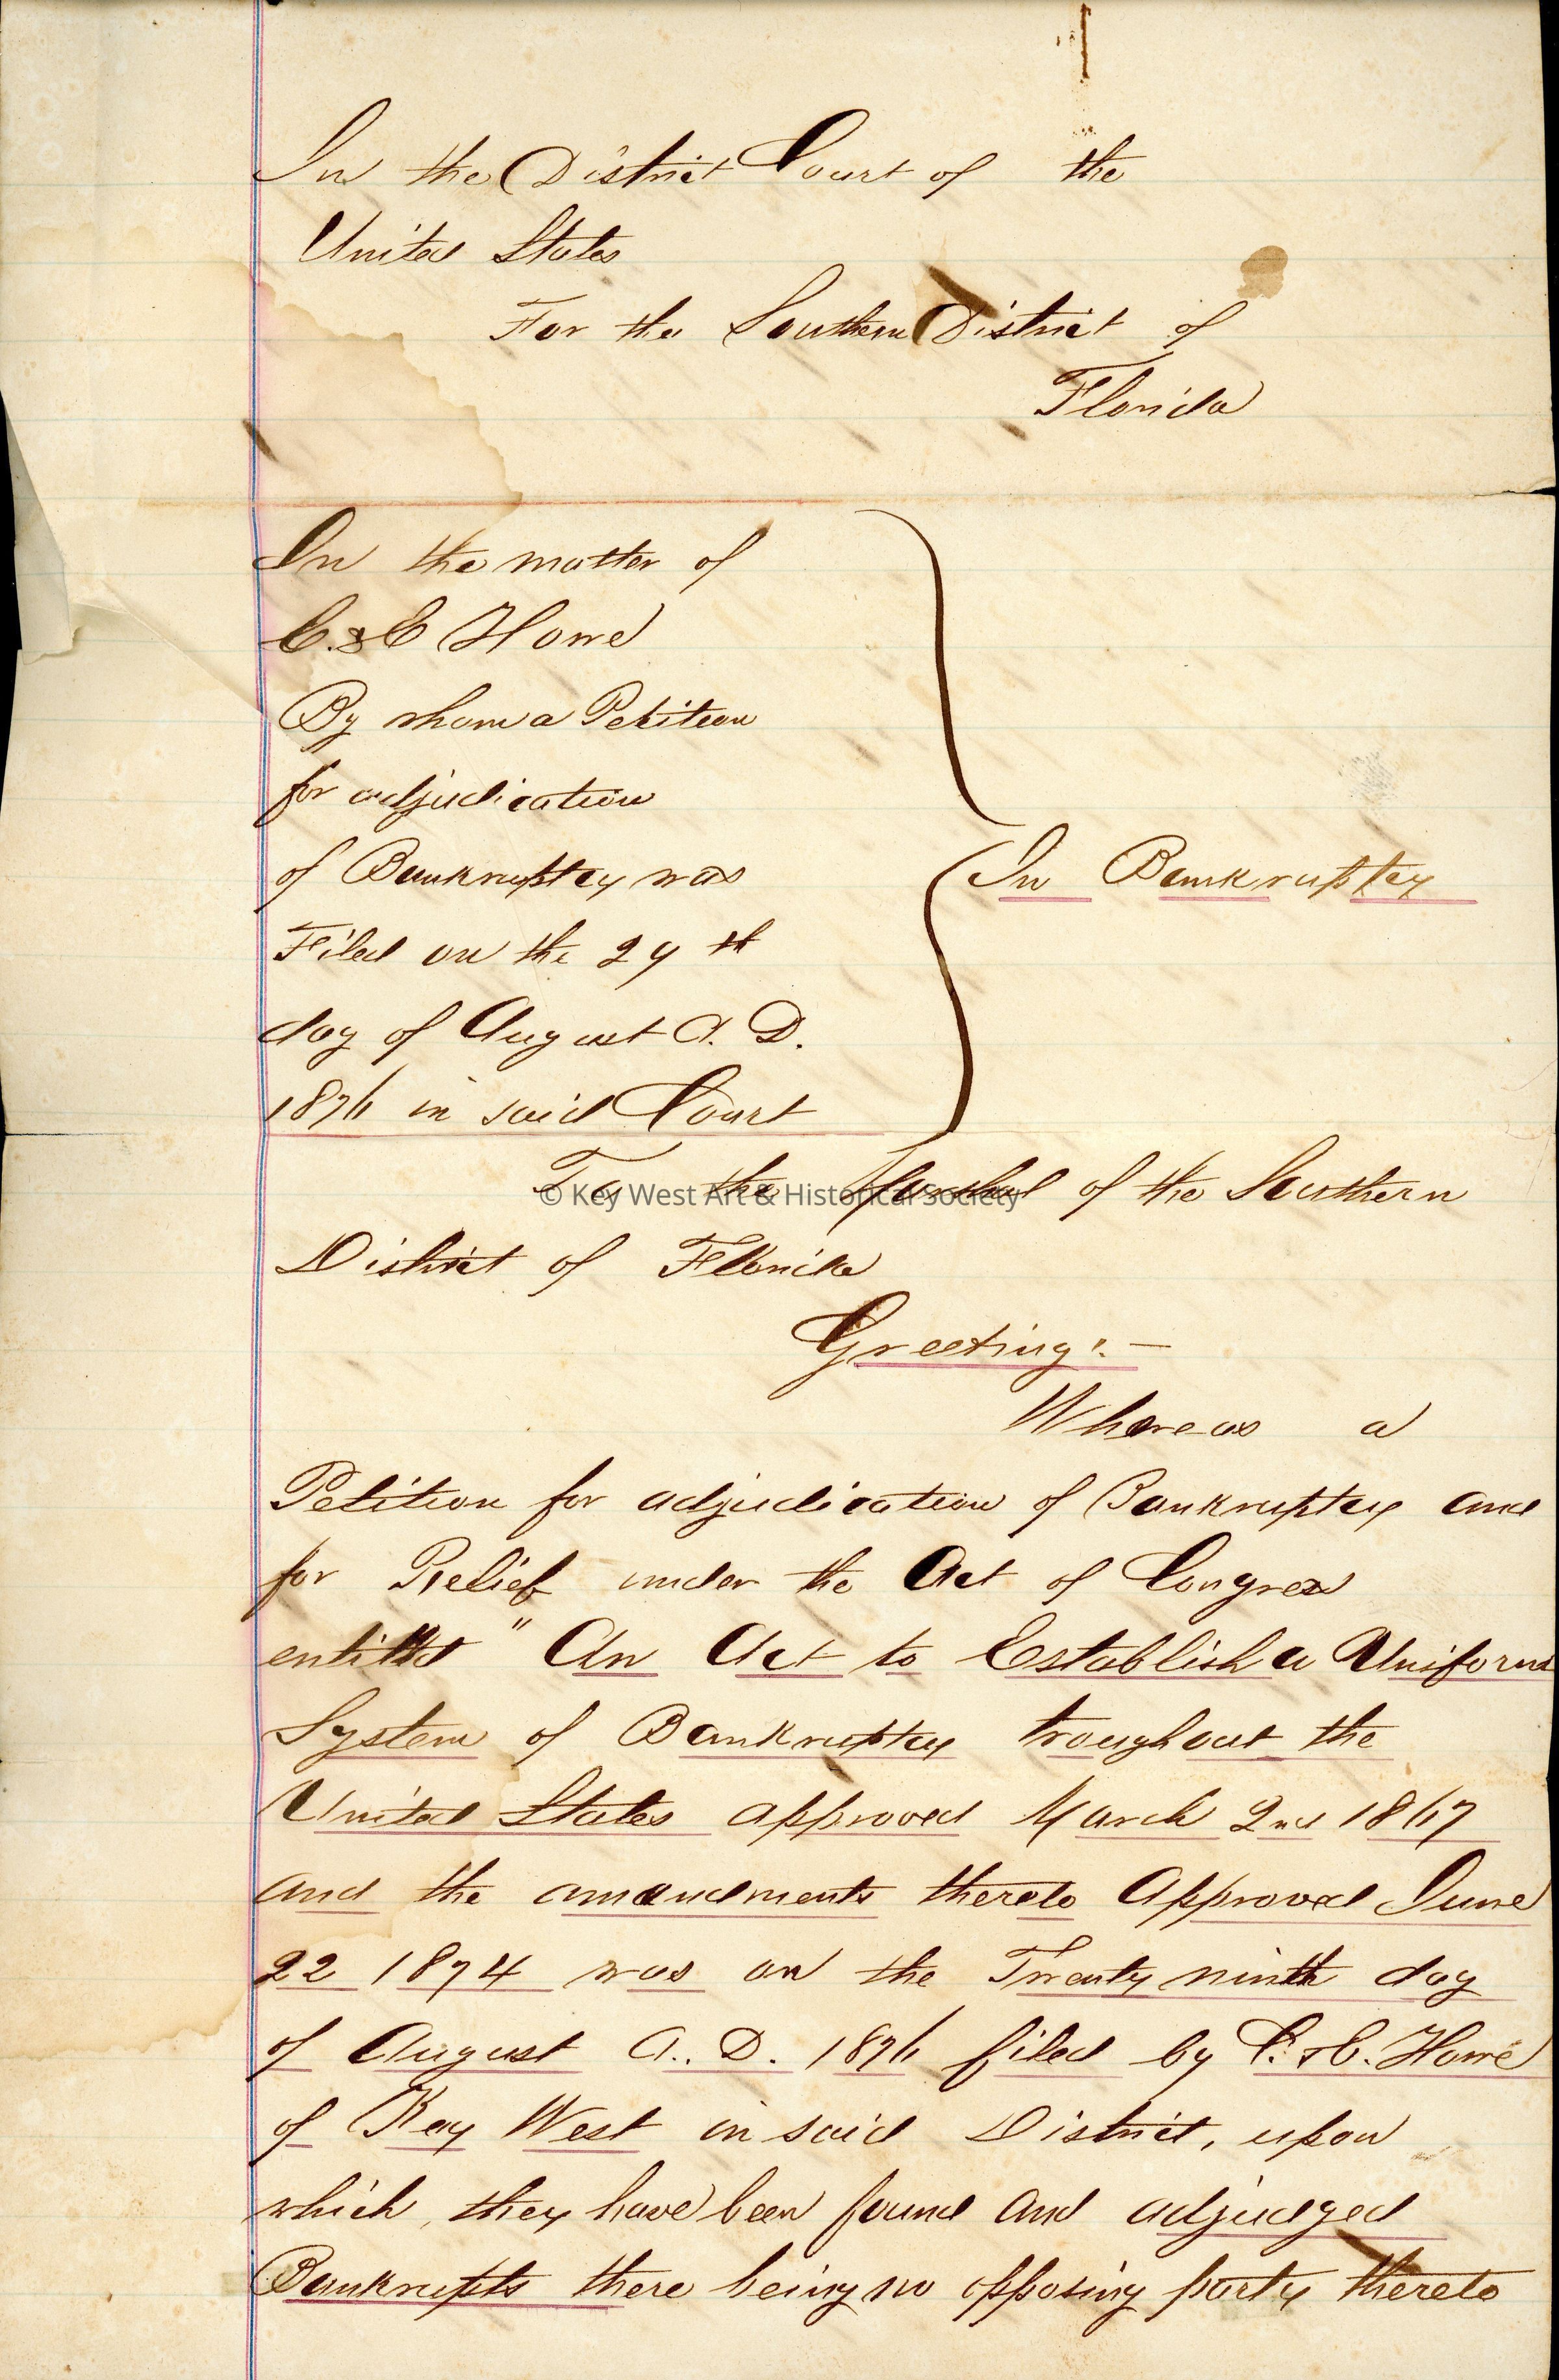 In the District Court of the
United States
For the Southern District of
Florida
In the matter of
C. & C Howe
By whom a Petition
for adjudication
of Bankruptcy was
Filed on the 29th
day of August A. D.
1876 in said Court
In Bankruptcy
To the Marshal of the Southern
© Key West Art & Historical Society
District of Florida
Greeting:—
Whereas a
Petition for adjudication of Bankruptcy and
for Relief under the Act of Congress
entitled "An Act to Establish a Uniform
System of Bankruptcy troughout the
United States approved March 2nd 1867
and the amendments thereto Approved June
22 1874 was on the Twenty ninth day
of August A. D. 1876 filed by C. & C. Howe
of Key West in said District, upon
which, they have been found and adjudged
Bankrupts there being no opposing party thereto